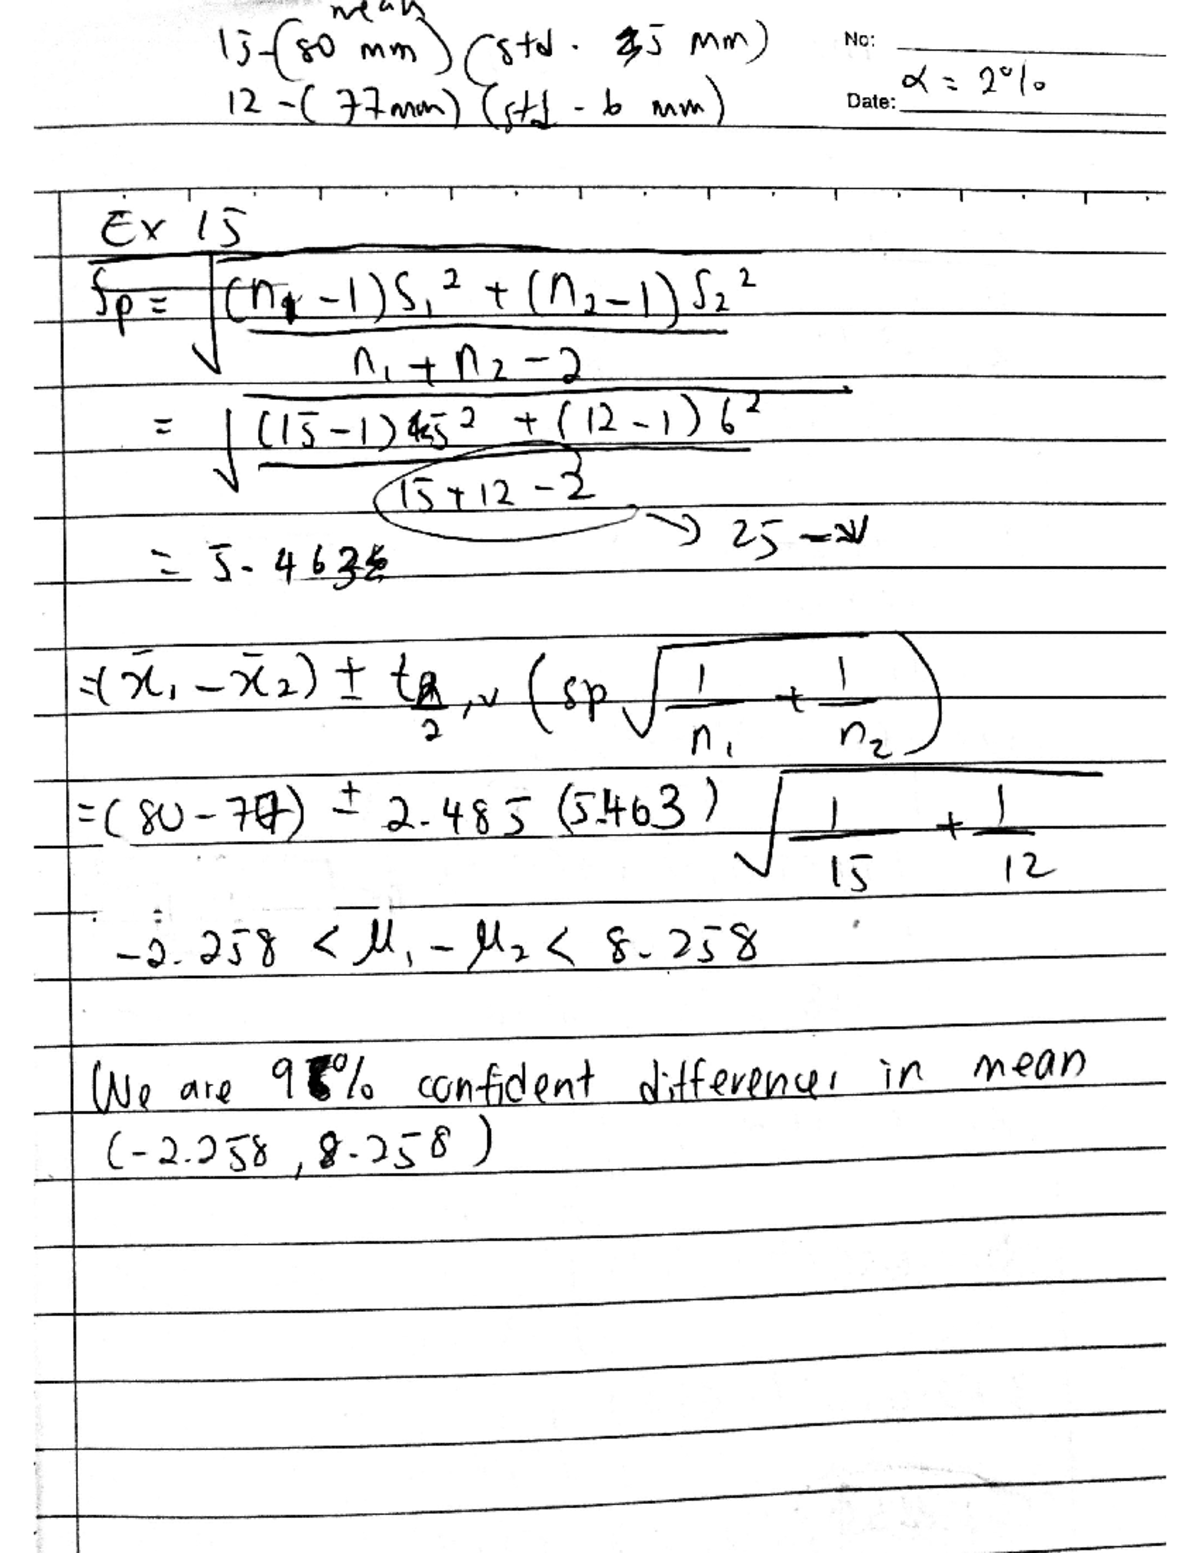 mean
15-(80 mm) (std. 5 mm) No:
12 -(77mm) (std - 6 mm) Date: α = 2%
Ex 15
Sp = √((n1 -1)S1² + (n2-1)S2²
n1 + n2 -2
= √((15-1)5² + (12-1)6²
15+12 -2 → 25 → v
= 5.463
=(x̄1 - x̄2) ± tα/2,v (sp √(1/n1 + 1/n2))
=(80-77) ± 2.485 (5.463) √(1/15 + 1/12)
-2.258 < μ1 - μ2 < 8.258
We are 98% confident differences in mean
(-2.258, 8.258)